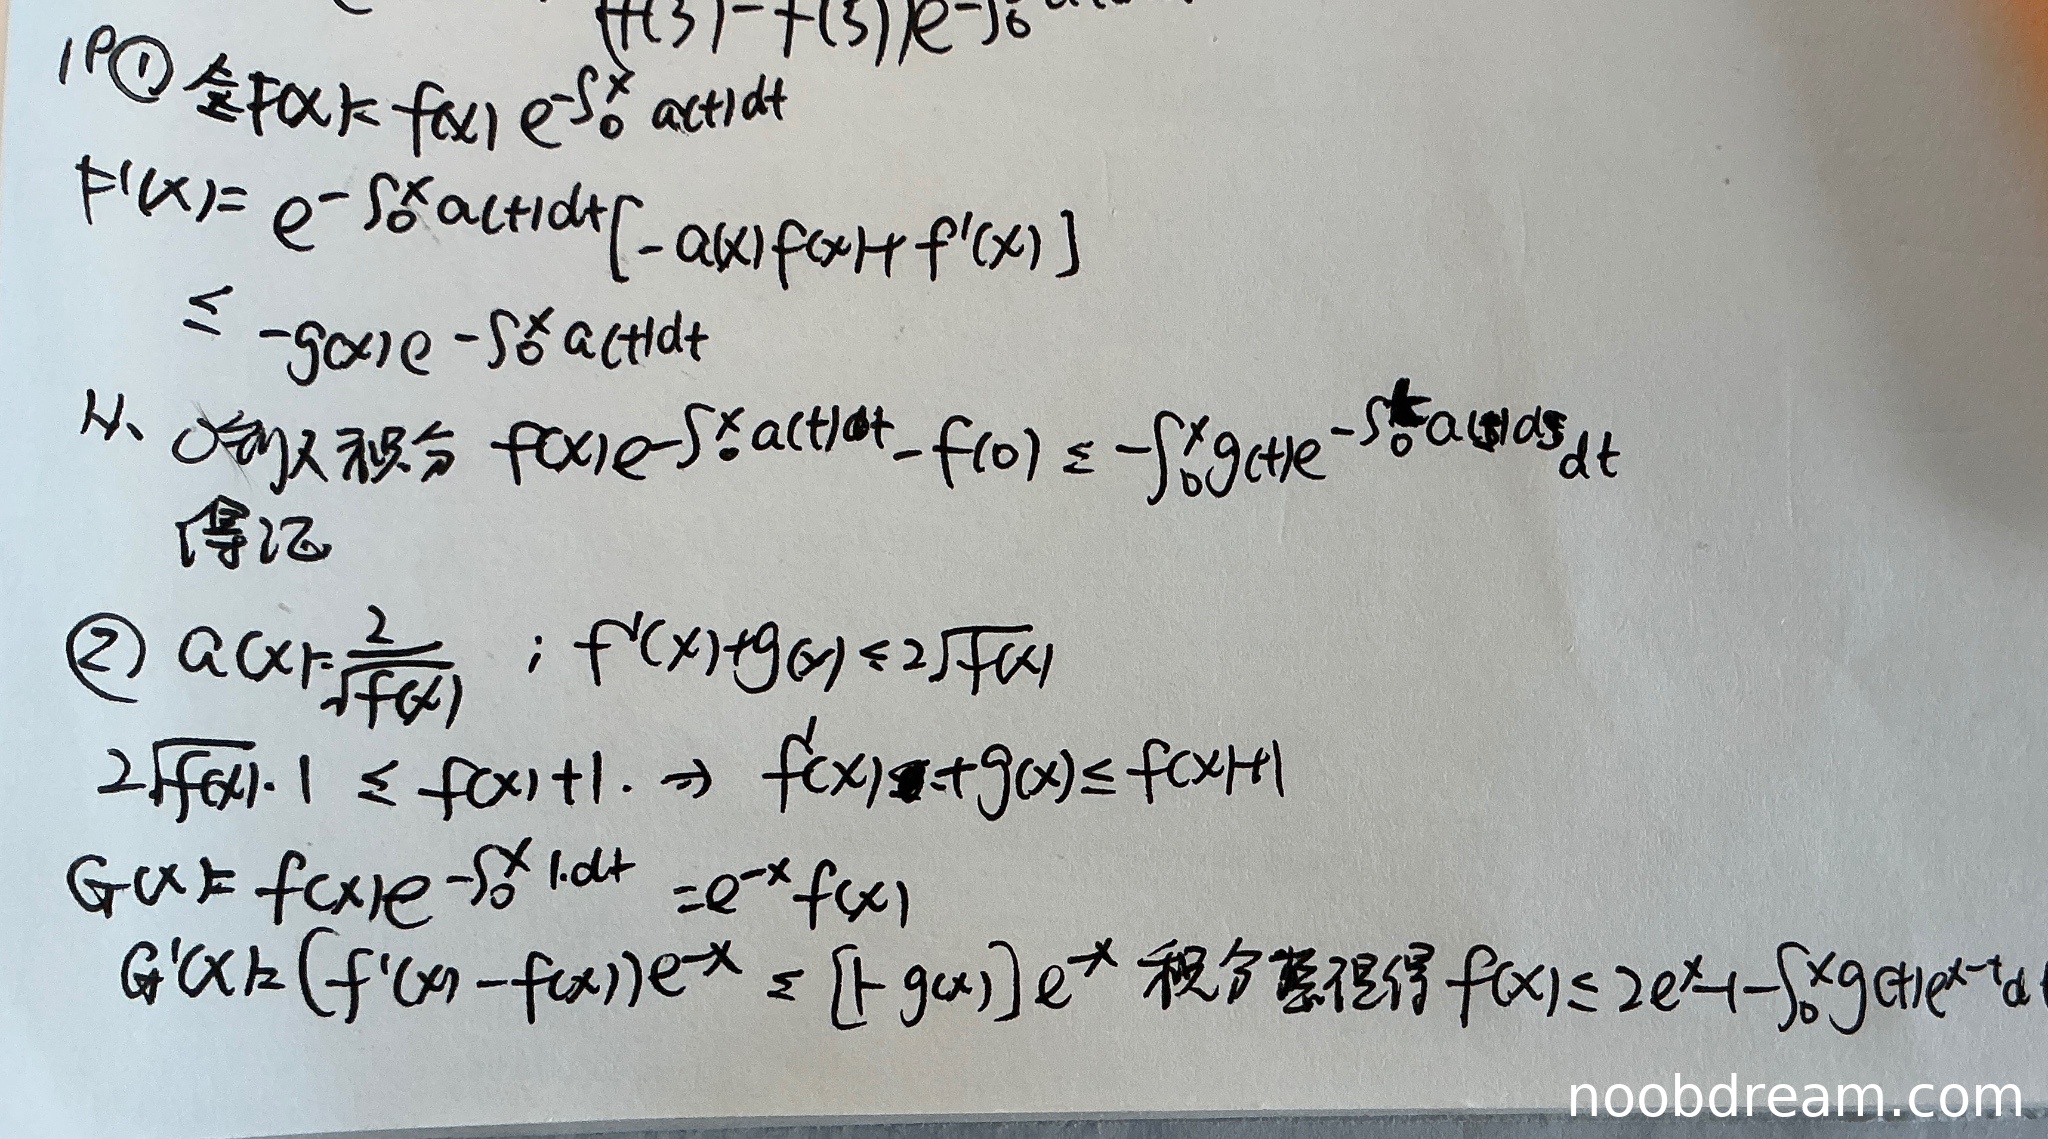 (f'(3)-f(3))e^{-∫_0
19① 令F(x)=f(x)e^{-∫_0^x a(t)dt}
F'(x)=e^{-∫_0^x a(t)dt}[-a(x)f(x)+f'(x)]
≤ -g(x)e^{-∫_0^x a(t)dt}
从 0到x积分 f(x)e^{-∫_0^x a(t)dt}-f(0)≤-∫_0^x g(t)e^{-∫_0^t a(s)ds}dt
得记
② a(x)=\frac{2}{\sqrt{f(x)}} ; f'(x)+g(x)≤2\sqrt{f(x)}
2\sqrt{f(x)}·1≤f(x)+1. ⇒ f'(x)+g(x)≤f(x)+1
G(x)=f(x)e^{-∫_0^x 1·dt}=e^{-x}f(x)
G'(x)=(f'(x)-f(x))e^{-x}≤[1-g(x)]e^{-x} 积分整理得 f(x)≤2e^x-1-∫_0^x g(t)e^{x-t}d
noobdream.com